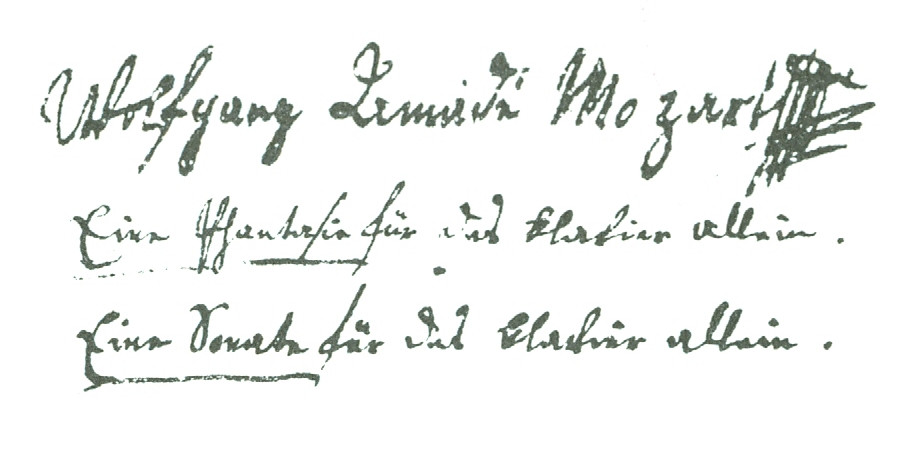 Wolfgang Amadè Mozart
Eine Phantasie für das Klavier allein.
Eine Sonate für das Klavier allein.